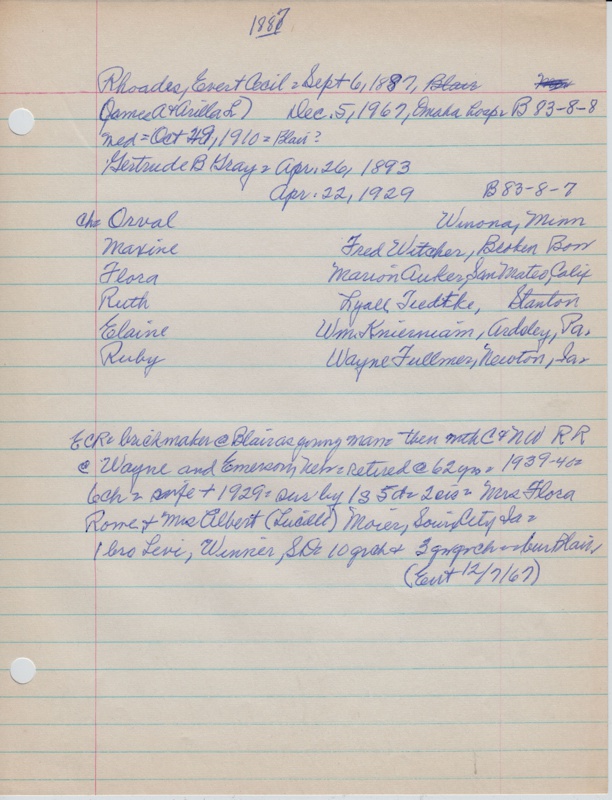 1887
Rhoades, Evert Cecil = Sept 6, 1887, Blair
(James A + Arilla L) Dec. 5, 1967, Omaha hosp = B 83-8-8
med = Oct 29, 1910 = Blair?
Gertrude B Gray = Apr. 26, 1893
Apr. 22, 1929 B83-8-7
ch = Orval Winona, Minn
Maxine Fred Witcher, Broken Bow
Flora Marion Auker, San Mateo, Calif
Ruth Lyall Tiedtke, Stanton
Elaine Wm. Knierniam, Ardsley, Pa.
Ruby Wayne Fullmer, Newton, Ia.
ECR = brickmaker @ Blair as young man = then with C & NW RR
@ Wayne and Emerson, Neb = retired @ 62 yrs = 1939-40 =
6 ch = wife + 1929 = sur by 1 s 5 d = 2 sis = Mrs Flora
Rome & Mrs Albert (Lucille) Moier, Sioux City Ia =
1 bro Levi, Winner, SD = 10 grch & 3 grgrch = bur Blair,
(Ent 12/7/67)